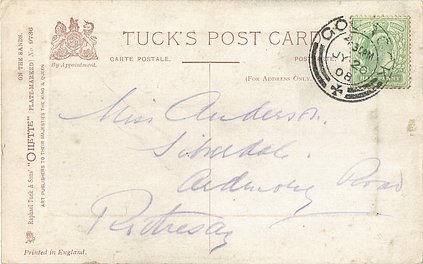 TUCK'S POST CARD
CARTE POSTALE.
(FOR ADDRESS ONLY
By Appointment.
ON THE SANDS.
Raphael Tuck & Sons' "OILETTE" [PLATE-MARKED] No 9786
ART PUBLISHERS TO THEIR MAJESTIES THE KING & QUEEN
Printed in England.
JY 28
08
Miss Anderson.
Ardmory Road
Rothesay